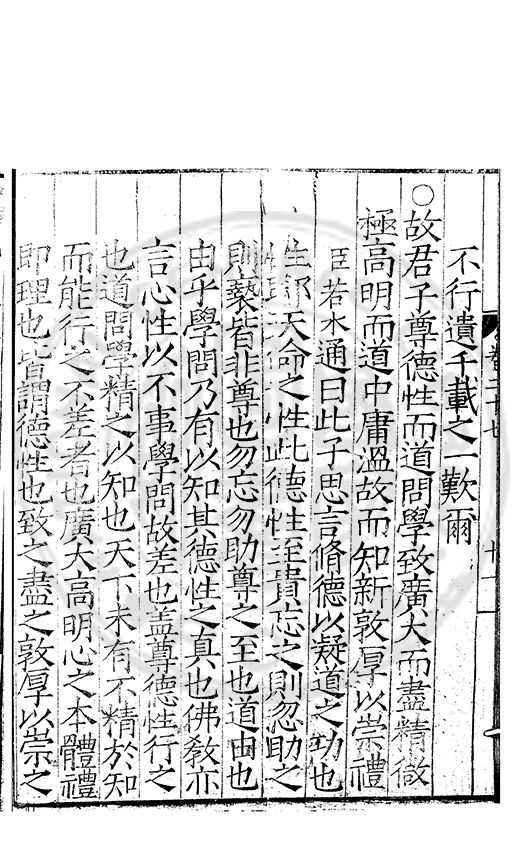 不行遺千載之一歎爾
○故君子尊德性而道問學致廣大而盡精微
極高明而道中庸溫故而知新敦厚以崇禮
臣若水通曰此子思言脩德以疑道之功也
性即天命之性此德性至貴忘之則忽助之
則褻皆非尊也勿忘勿助尊之至也道由也
由乎學問乃有以知其德性之真也佛教亦
言心性以不事學問故差也盖尊德性行之
也道問學精之以知也天下未有不精於知
而能行之不差者也廣大高明心之本體禮
即理也皆謂德性也致之盡之敦厚以崇之
卷二十七